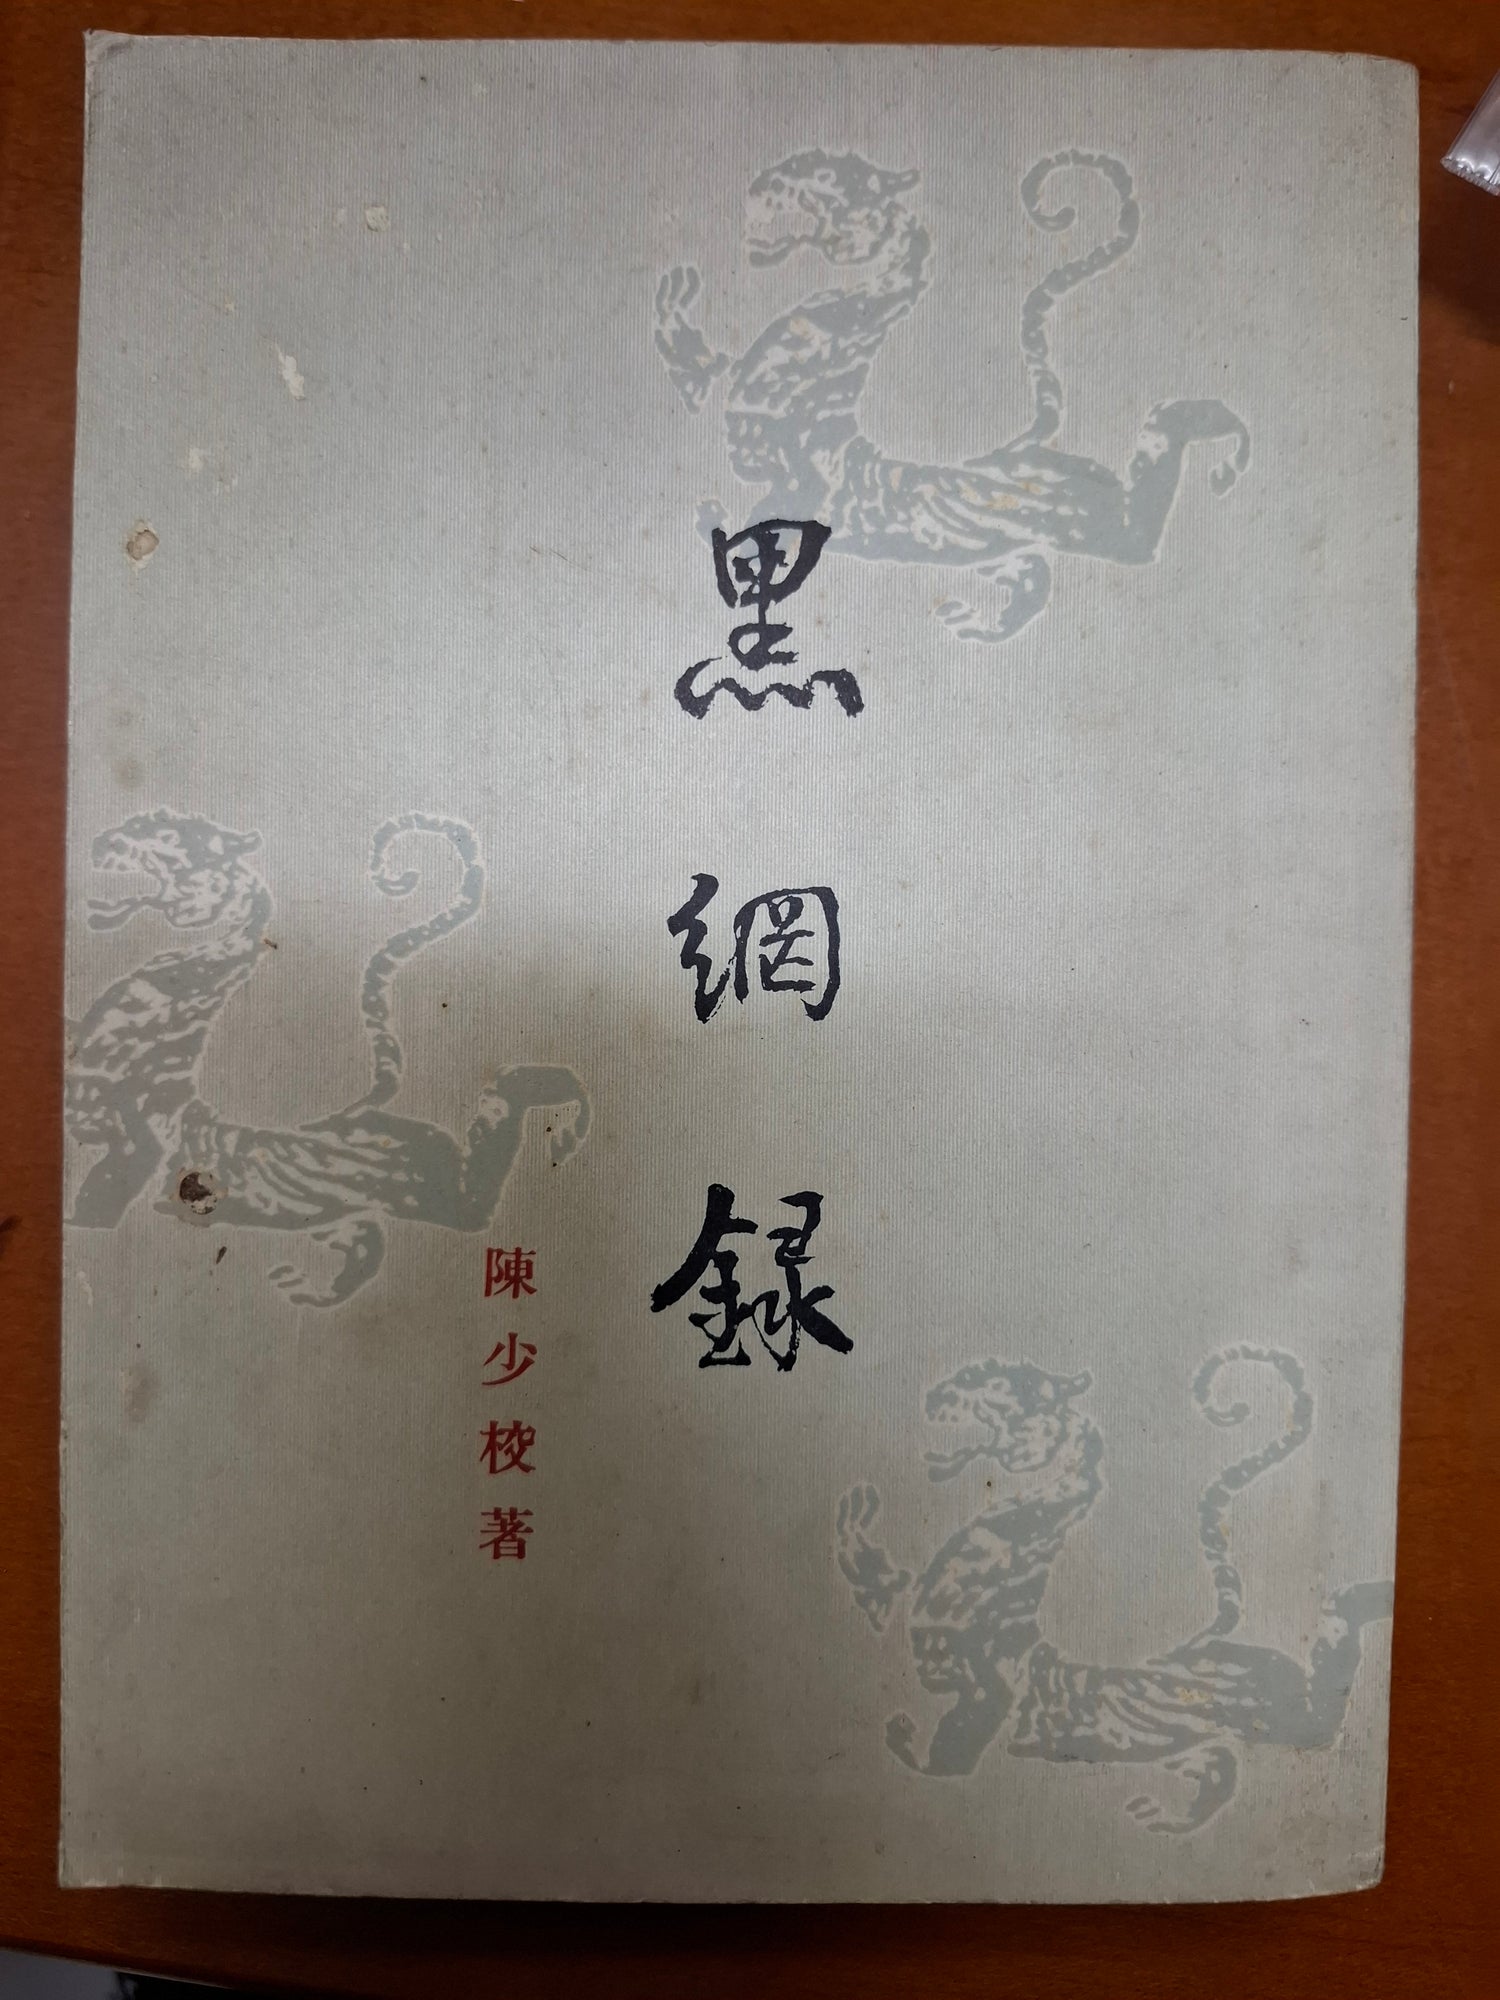 黑網録
陳少校著